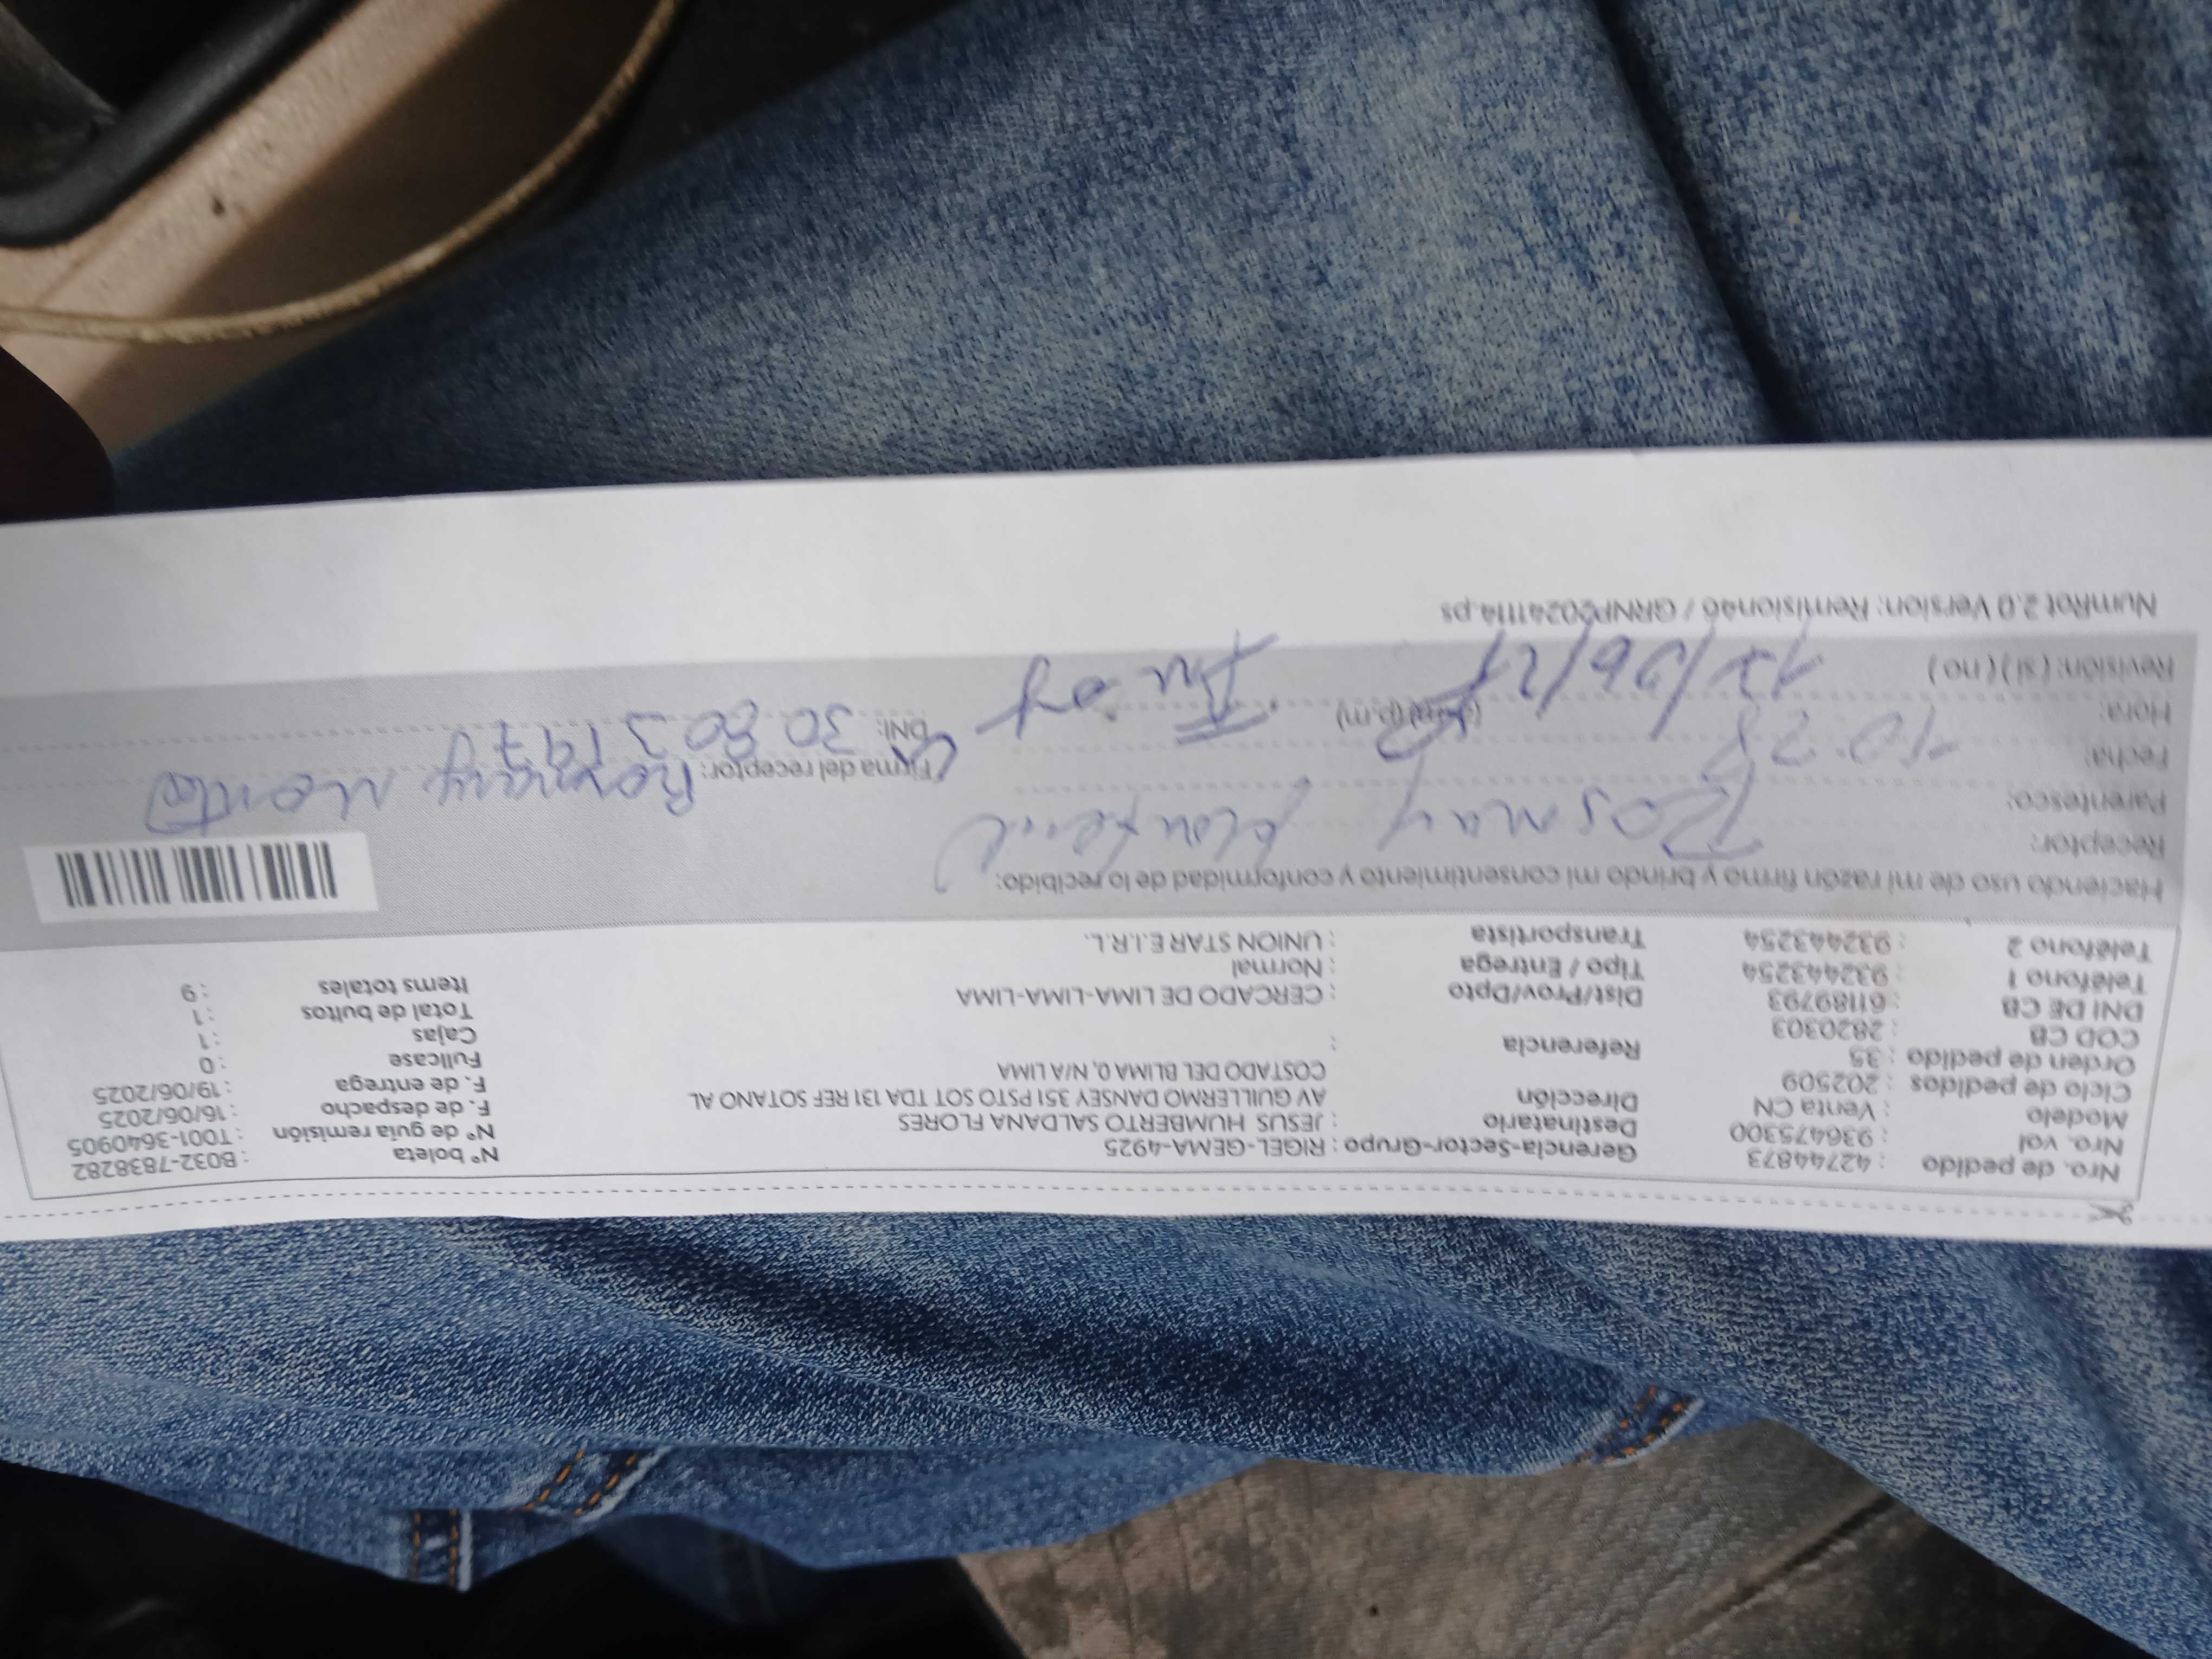 Nro. de pedido : 42744873
Nro. val : 936475300
Modelo : Venta CN
Ciclo de pedidos : 202509
Orden de pedido : 35
COD CB : 2820303
DNI DE CB : 61189793
Teléfono 1 : 932443254
Teléfono 2 : 932443254
Gerencia-Sector-Grupo : RIGEL-GEMA-4925
Destinatario : JESUS HUMBERTO SALDANA FLORES
Dirección AV GUILLERMO DANSEY 351 PSTO SOT TDA 131 REF SOTANO AL
COSTADO DEL BLIMA 0, N/A LIMA
Referencia :
Dist/Prov/Dpto : CERCADO DE LIMA-LIMA-LIMA
Tipo / Entrega : Normal
Transportista : UNION STAR E.I.R.L.
N° boleta : B032-7838282
N° de guía remisión : T001-3640905
F. de despacho : 16/06/2025
F. de entrega : 19/06/2025
Fullcase : 0
Cajas : 1
Total de bultos : 1
Items totales : 9
Haciendo uso de mi razón firmo y brindo mi consentimiento y conformidad de lo recibido:
Receptor: Rosmary
Parentesco:
Fecha: 10:28
Hora: (a.m) (p.m)
Revisión: (si) (no)
Firma del receptor: Rosmary
DNI: 30803197
NumRot 2.0 Version: Remision46 / GRNP20241114.ps